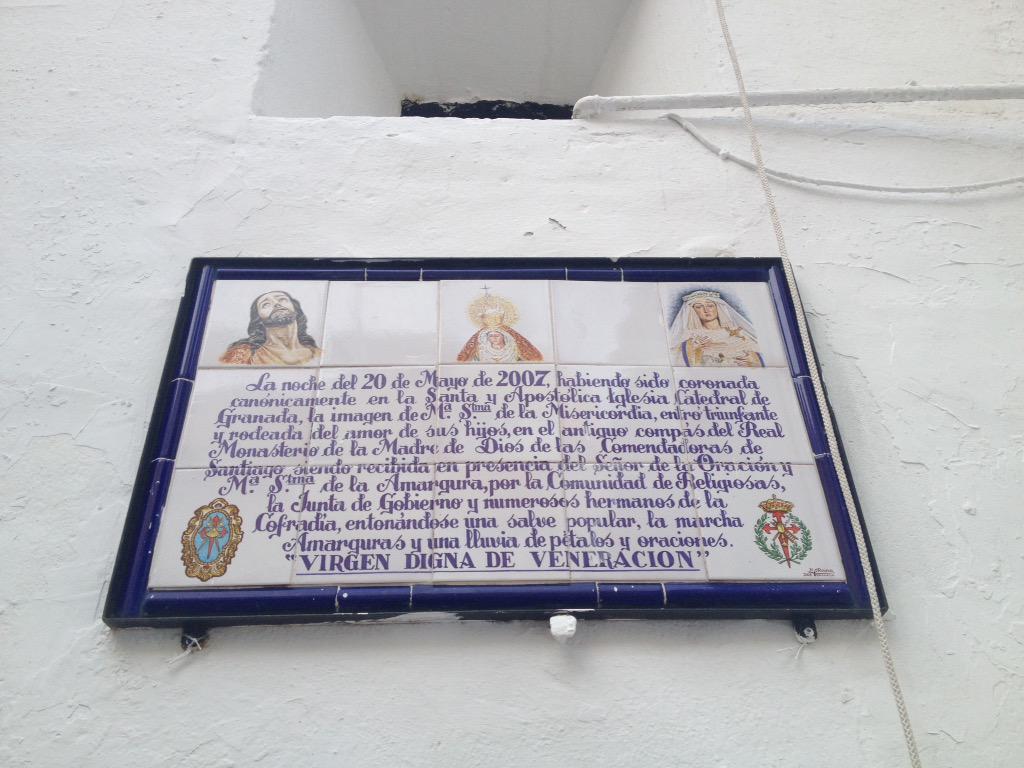 La noche del 20 de Mayo de 2007, habiendo sido coronada
canónicamente en la Santa y Apostólica Iglesia Catedral de
Granada, la imagen de Mª. Stmª de la Misericordia, entró triunfante
y rodeada del amor de sus hijos, en el antiguo compás del Real
Monasterio de la Madre de Dios de las Comendadoras de
Santiago siendo recibida en presencia del Señor de la Oración y
Mª. Stmª de la Amargura, por la Comunidad de Religiosas,
la Junta de Gobierno y numerosos hermanos de la
Cofradía, entonándose una salve popular, la marcha
Amarguras y una lluvia de pétalos y oraciones.
"VIRGEN DIGNA DE VENERACION"